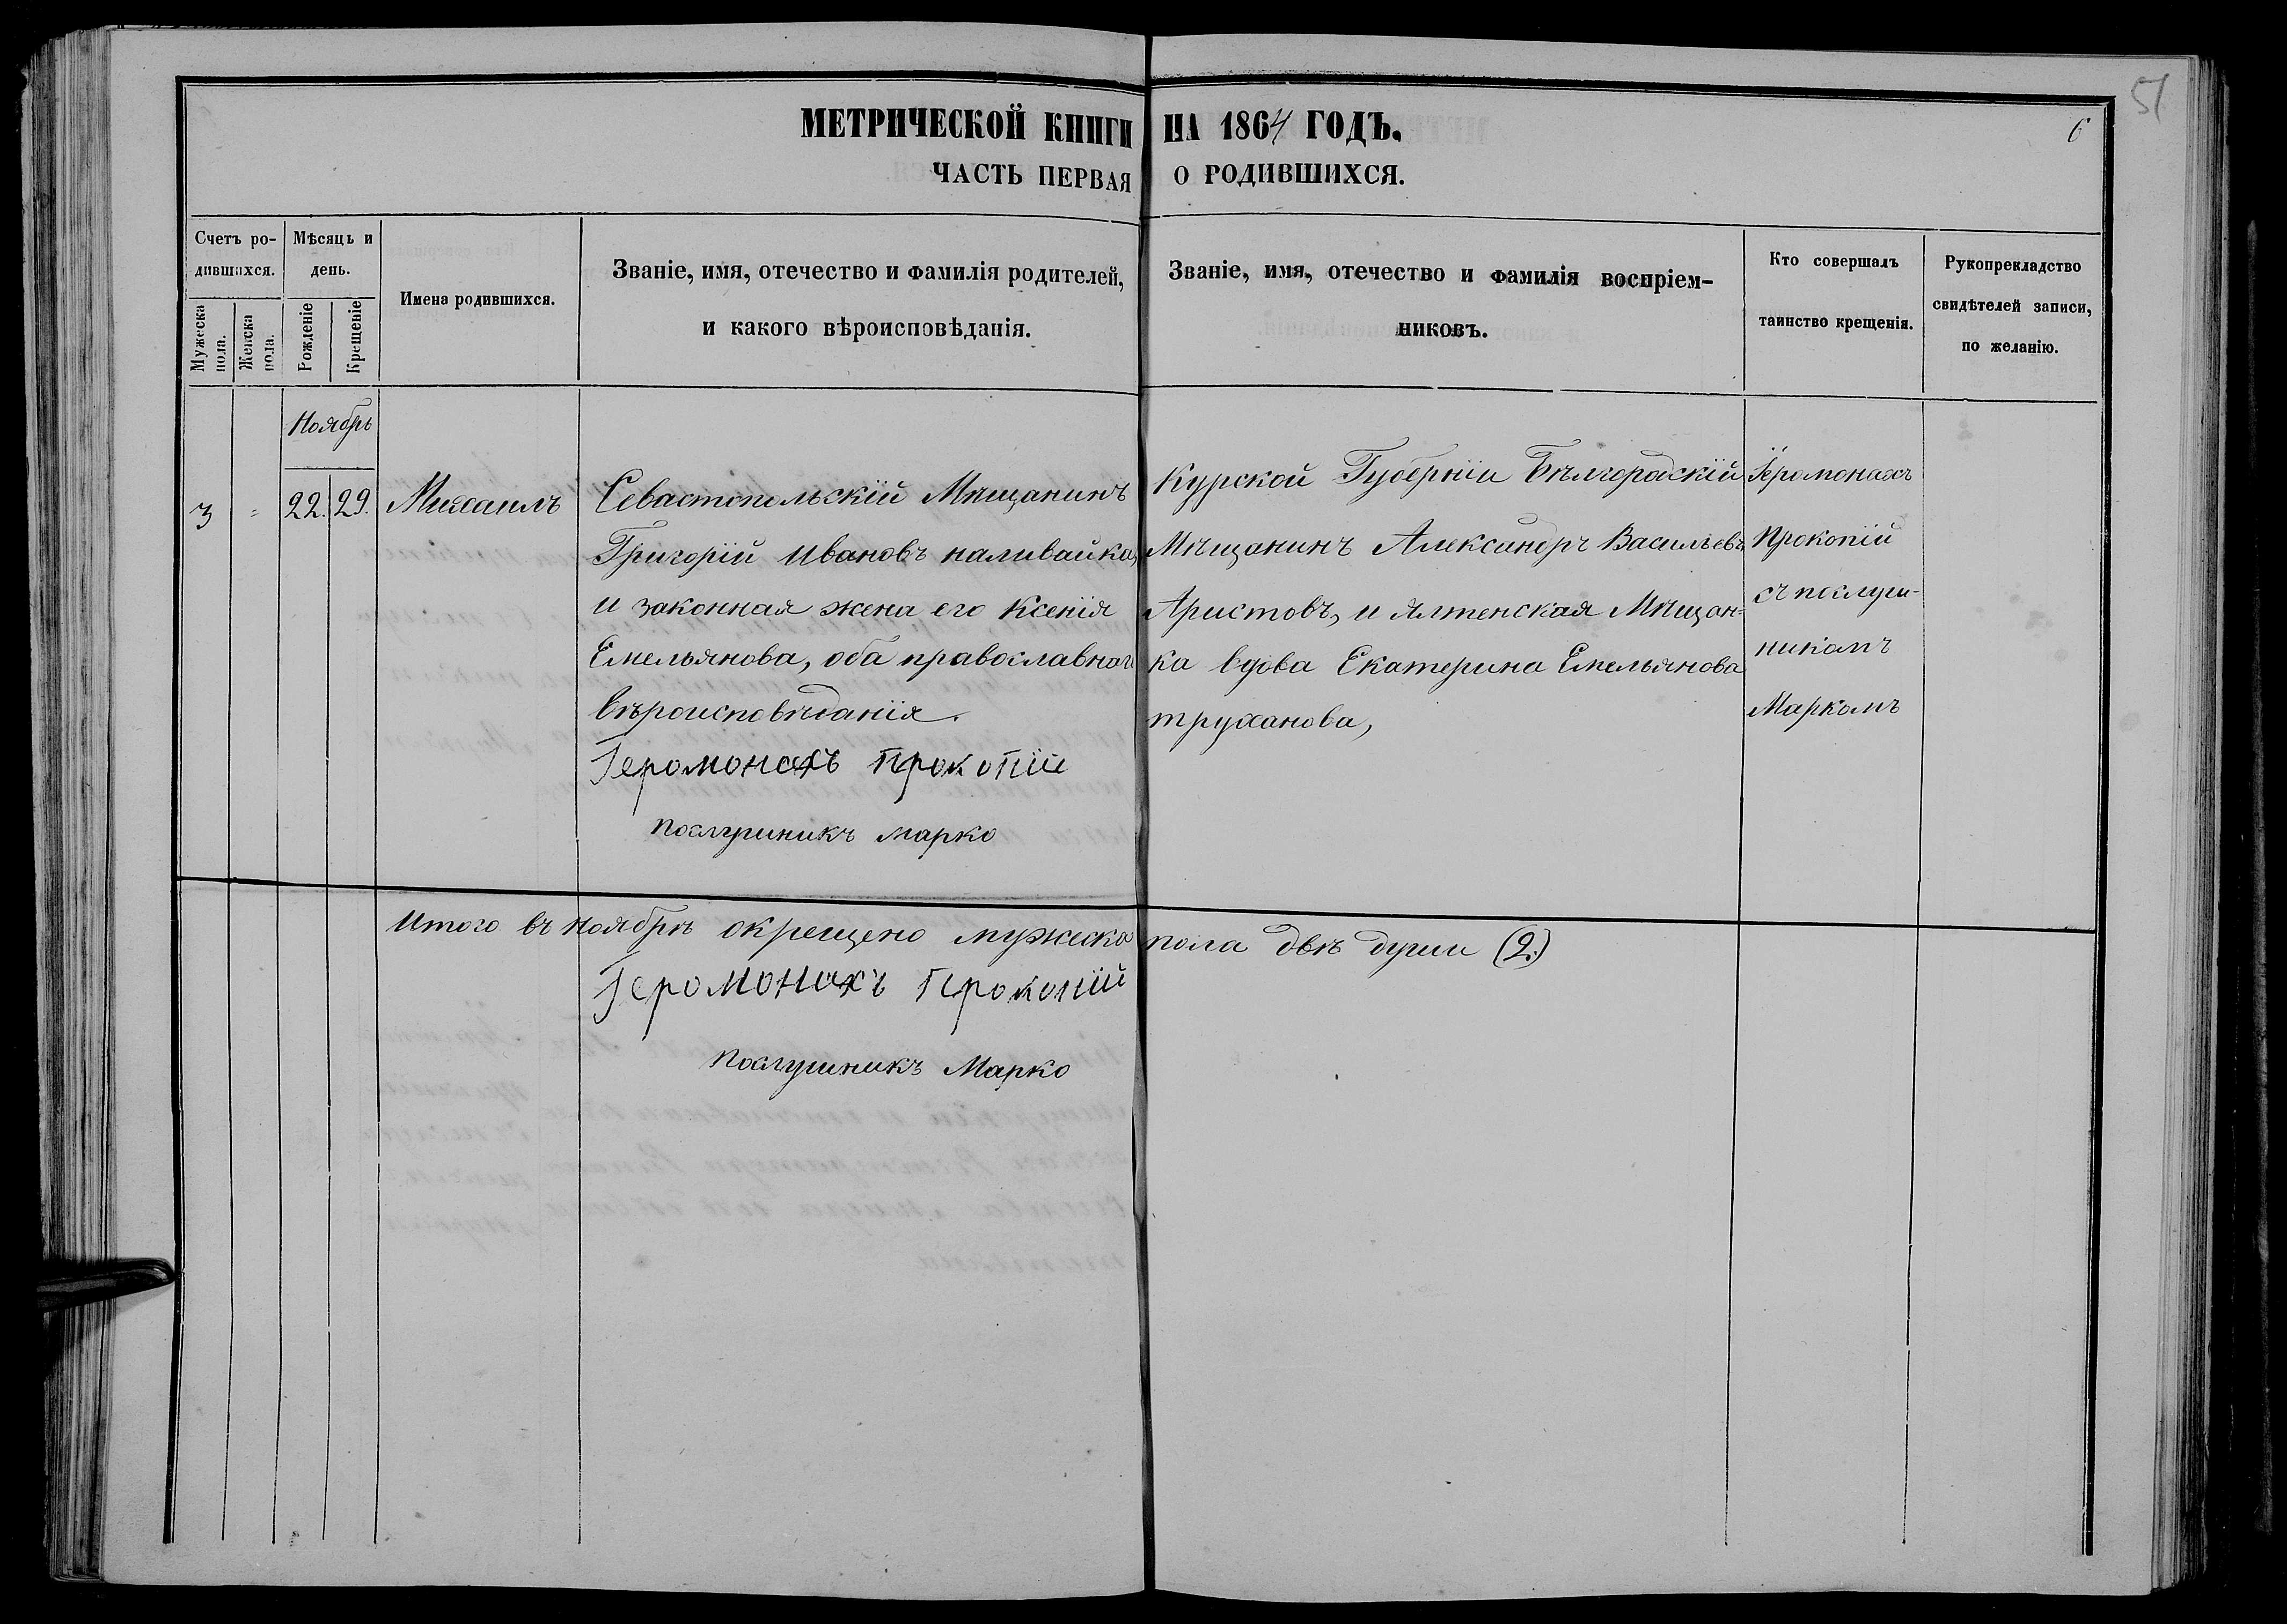 51
6
МЕТРИЧЕСКОЙ КНИГИ НА 1864 ГОДЪ.
ЧАСТЬ ПЕРВАЯ О РОДИВШИХСЯ.
Счетъ ро-
дившихся.
Мужеска
пола.
Женска
пола.
Мѣсяцъ и
день.
Рожденіе
Крещеніе
Имена родившихся.
Званіе, имя, отечество и фамилія родителей,
и какого вѣроисповѣданія.
Званіе, имя, отечество и фамилія воспріем-
никовъ.
Кто совершалъ
таинство крещенія.
Рукопрекладство
свидѣтелей записи,
по желанію.
Ноябрь
3 = 22. 29. Михаилъ
Севастопольскій Мѣщанинъ
Григорій Ивановъ наливайко,
и законная жена его Ксенія
Емельянова, оба православнаго
вѣроисповѣданія.
Іеромонахъ Прокопій
послушникъ марко
Курской Губерніи Бѣлгородскій
Мѣщанинъ Александръ Васильевъ
Аристовъ, и Ялтенская Мѣщан-
ка вдова Екатерина Емельянова
труханова,
Іеромонахъ
Прокопій
съ послуш-
никомъ
Маркомъ
Итого въ Ноябрѣ окрещено мужеска пола двѣ души (2.)
Іеромонахъ Прокопій
послушникъ Марко